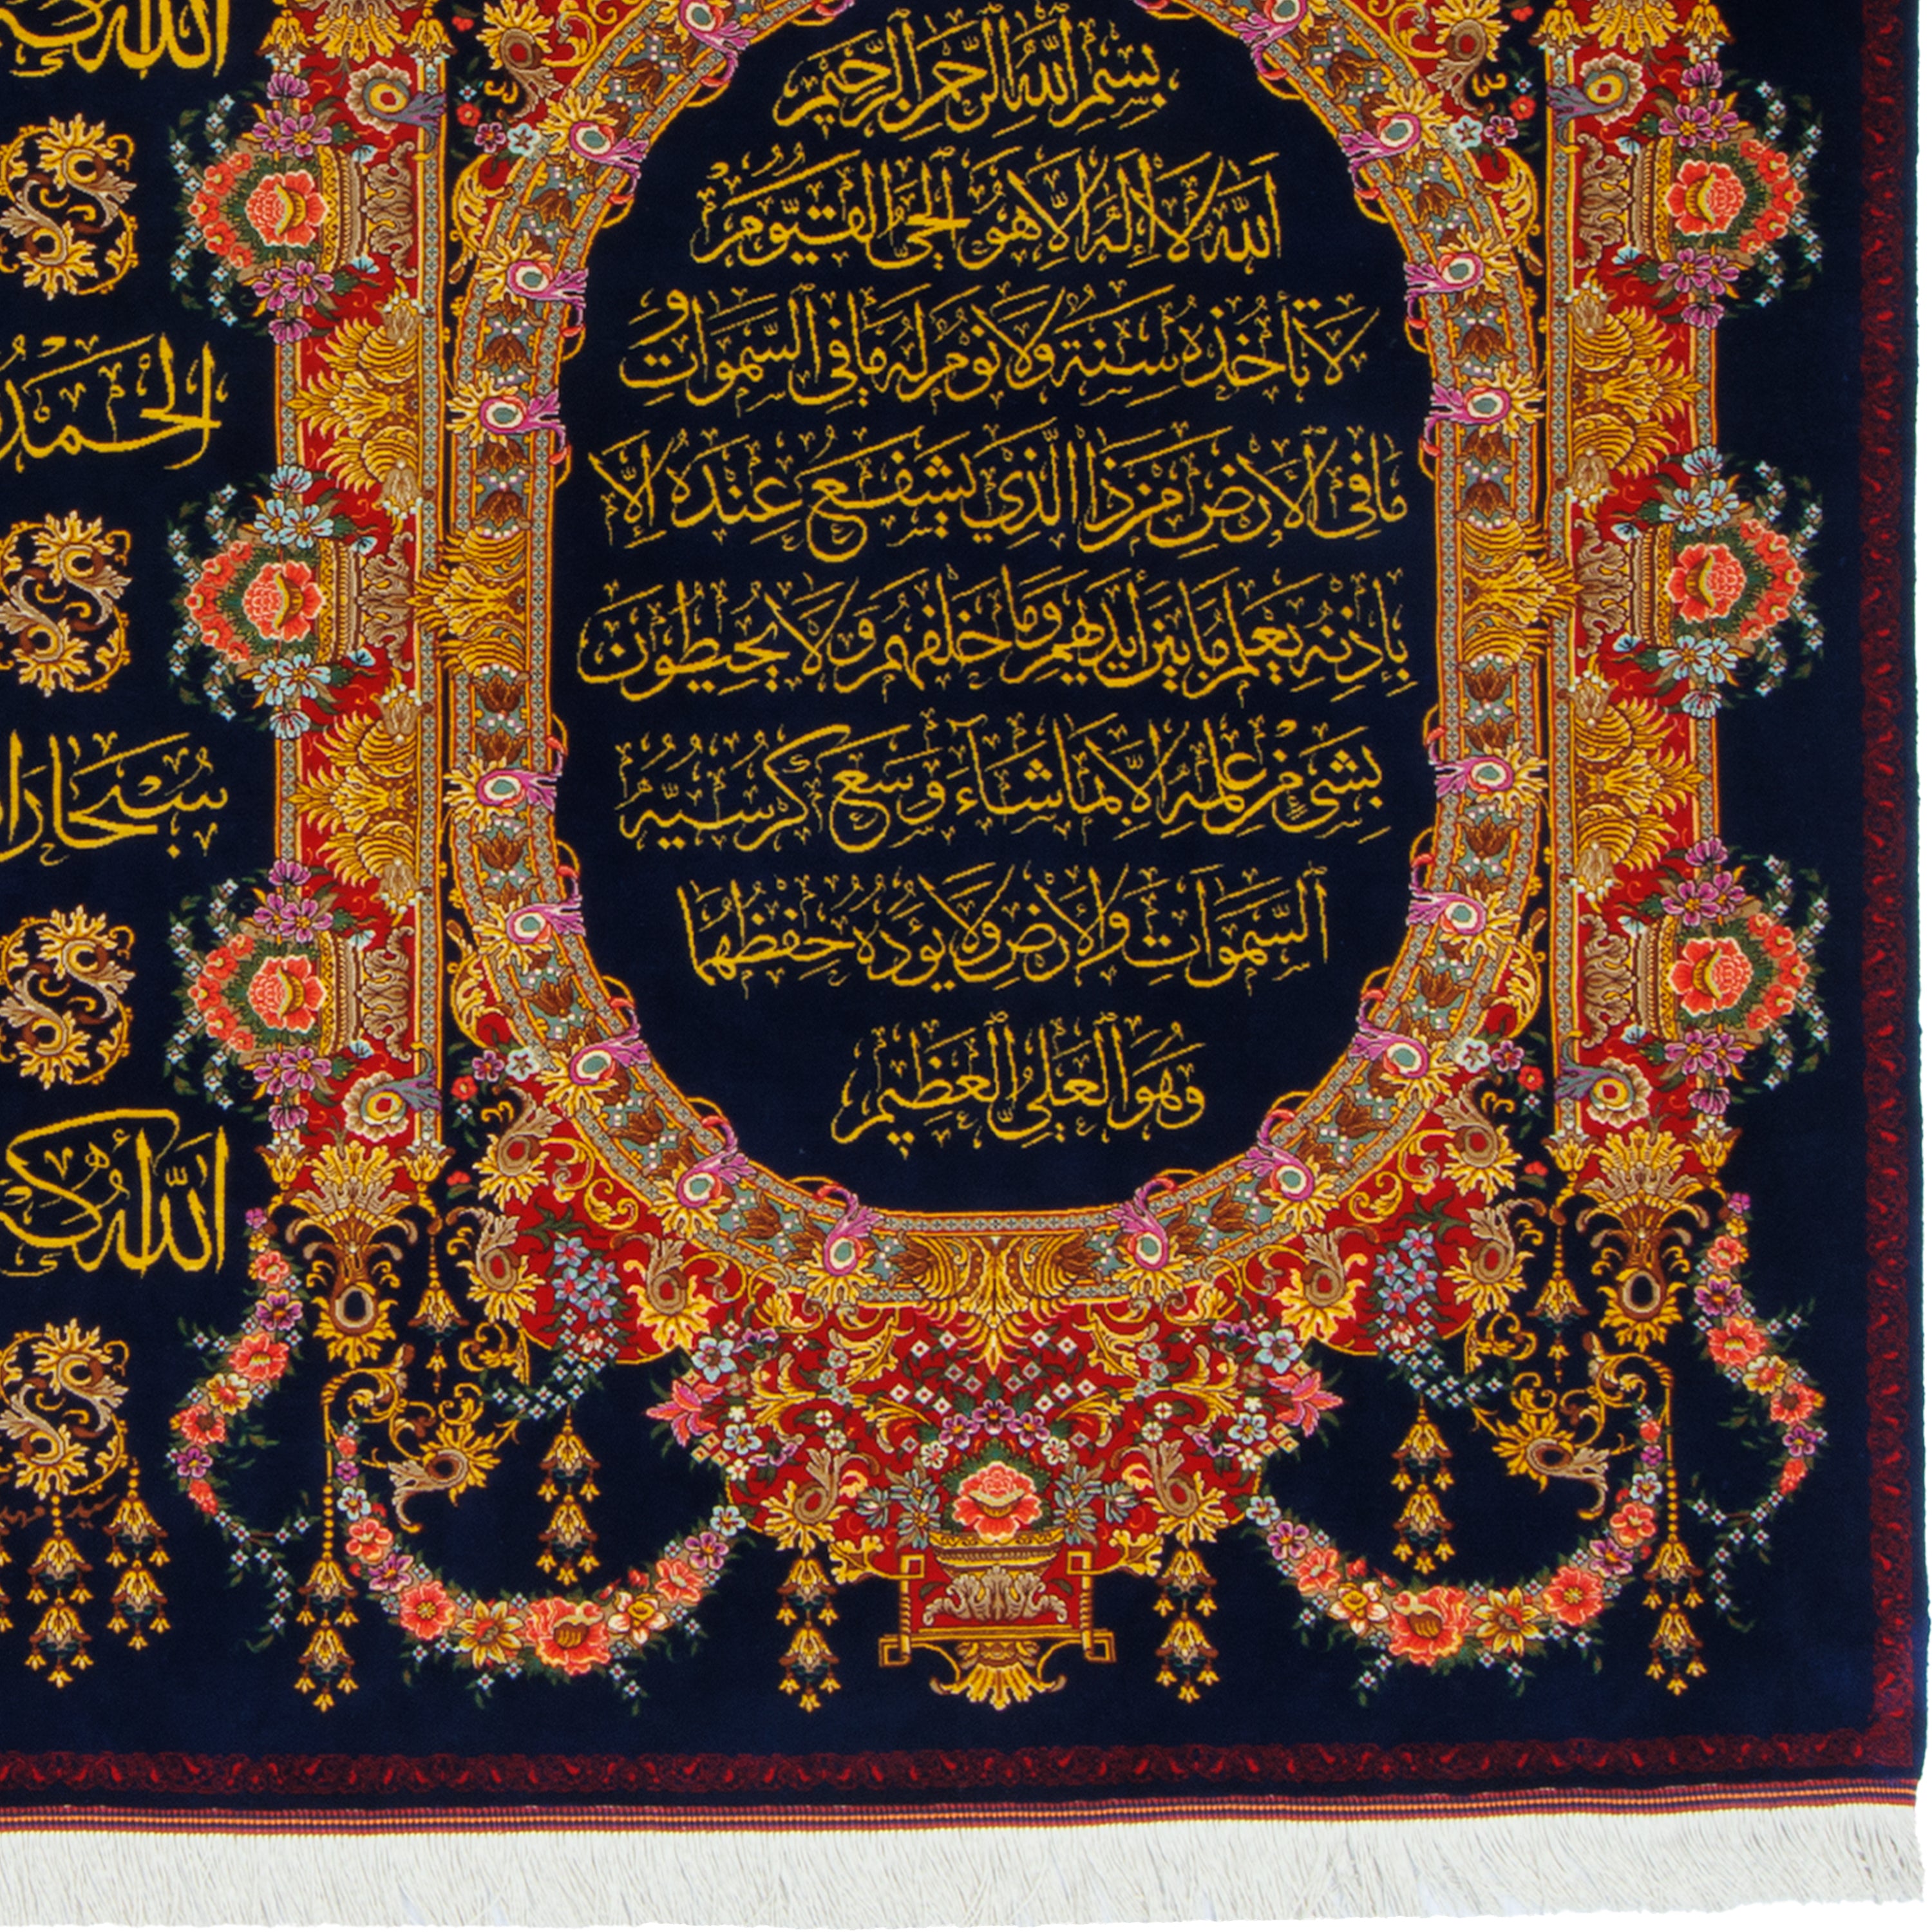 بِسْمِ اللّٰهِ الرَّحْمٰنِ الرَّحِيْمِ
اَللّٰهُ لَا اِلٰهَ اِلَّا هُوَ الْحَيُّ الْقَيُّوْمُ
لَا تَأْخُذُهُ سِنَةٌ وَلَا نَوْمٌ لَهُ مَا فِي السَّمٰوَاتِ وَ
مَا فِي الْاَرْضِ مَنْ ذَا الَّذِيْ يَشْفَعُ عِنْدَهُ اِلَّا
بِاِذْنِهِ يَعْلَمُ مَا بَيْنَ اَيْدِيْهِمْ وَمَا خَلْفَهُمْ وَلَا يُحِيْطُوْنَ
بِشَيْءٍ مِنْ عِلْمِهِ اِلَّا بِمَا شَاءَ وَسِعَ كُرْسِيُّهُ
السَّمٰوَاتِ وَالْاَرْضَ وَلَا يَؤُدُهُ حِفْظُهُمَا
وَهُوَ الْعَلِيُّ الْعَظِيْمُ
اللّٰه
الحمد
سبحان
اللّٰه